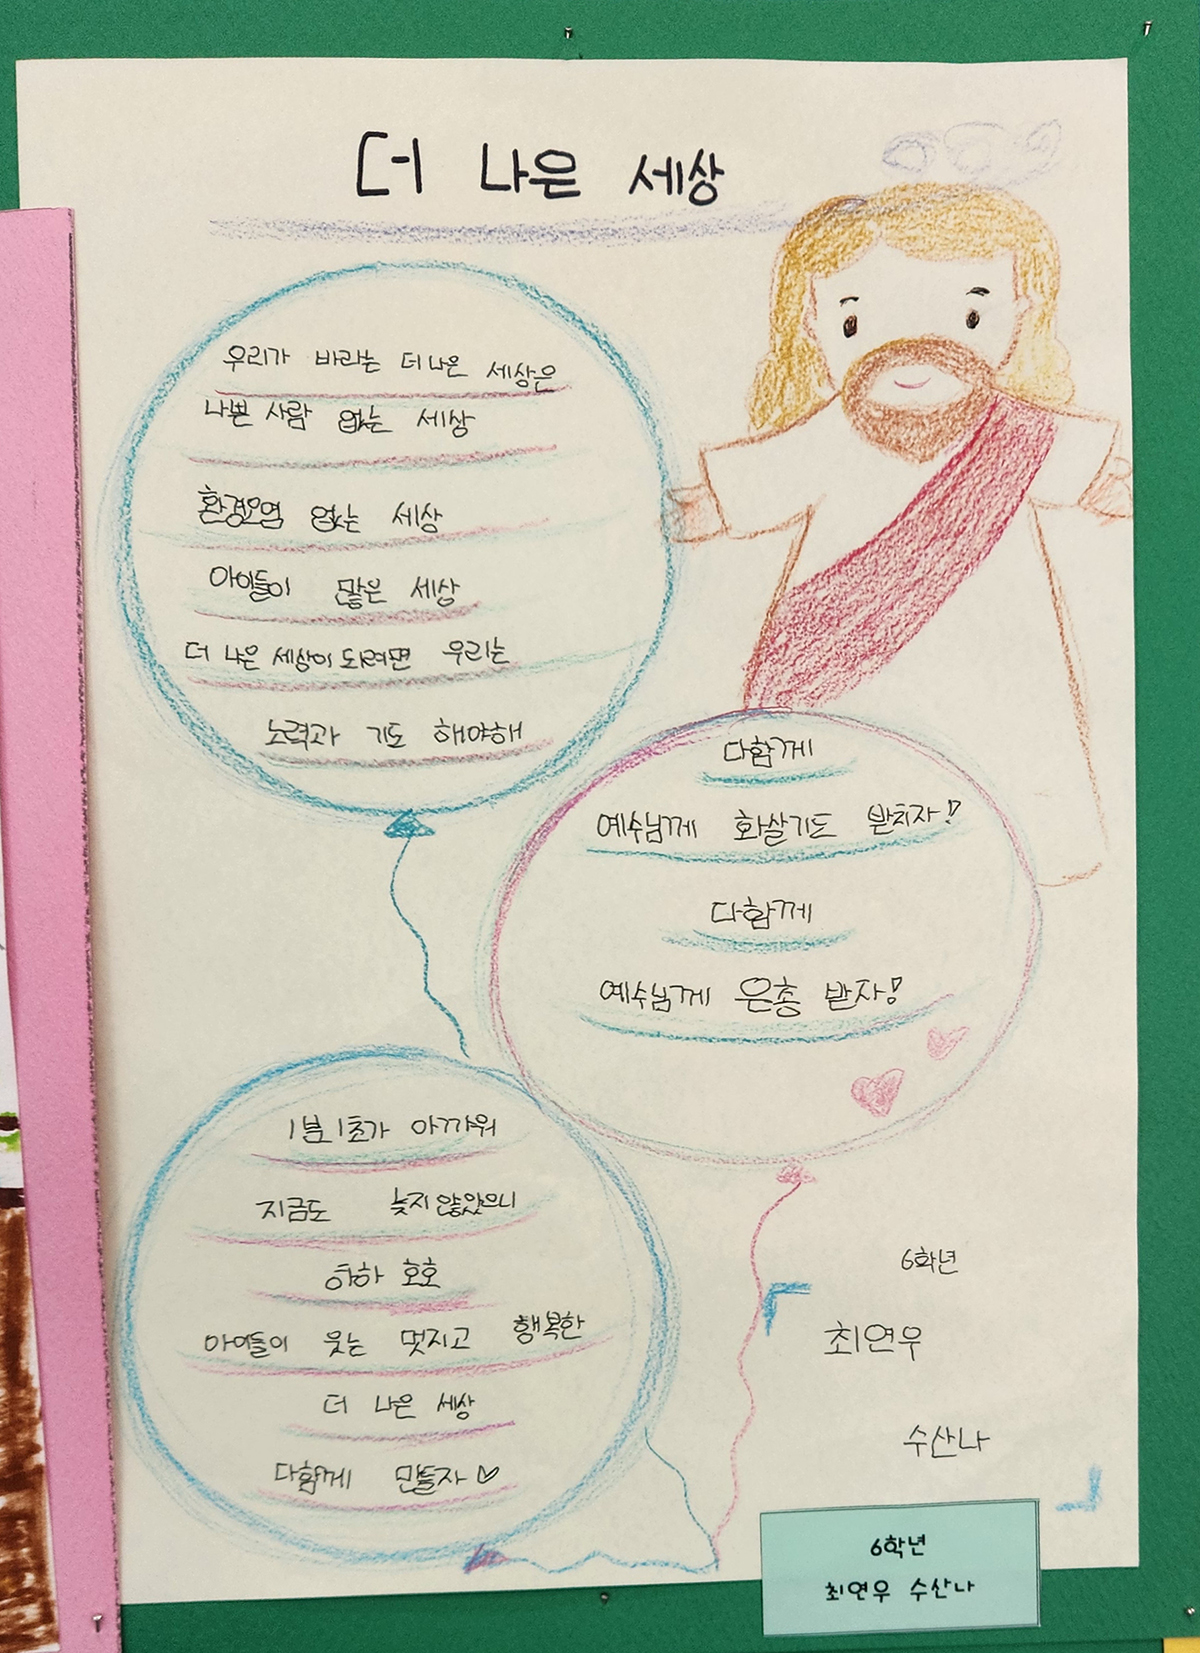 더 나은 세상
우리가 바라는 더 나은 세상은
나쁜 사람 없는 세상
환경오염 없는 세상
아이들이 많은 세상
더 나은 세상이 되려면 우리는
노력과 기도 해야해
다함께
예수님께 화살기도 받치자!
다함께
예수님께 은총 받자!
1분 1초가 아까워
지금도 늦지 않았으니
하하 호호
아이들이 웃는 멋지고 행복한
더 나은 세상
다함께 만들자♡
6학년
최연우
수산나
6학년
최연우 수산나